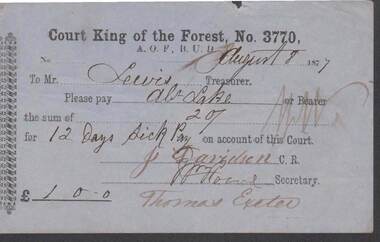 Court King of the Forest, No. 3770,
A. O. F., B. U. D.
No August 8 1877
To Mr. Lewis Treasurer.
Please pay Lake or Bearer
the sum of 20/
for 12 Days Sick Pay on account of this Court.
J. Davidson C. R.
Secretary.
£ 1-0-0
Thomas Exeter